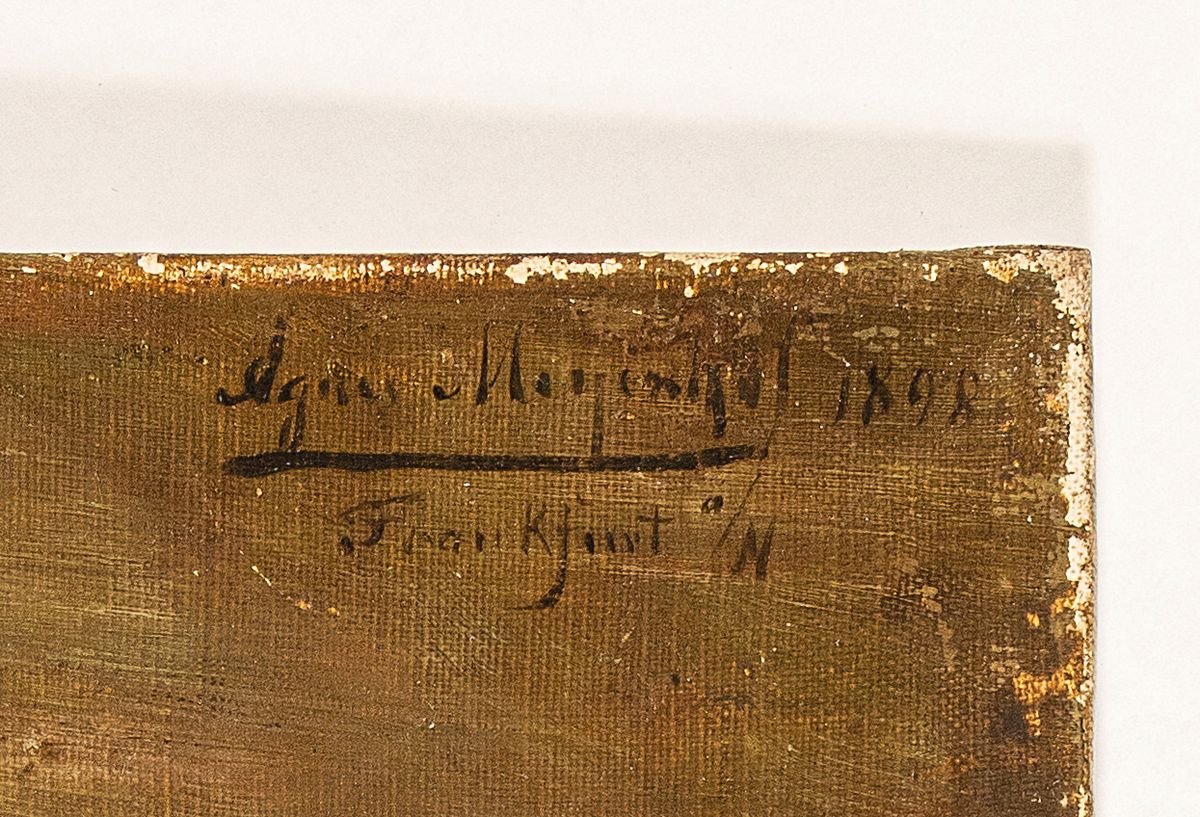 Agnes Meyerhof 1898
Frankfurt a/M